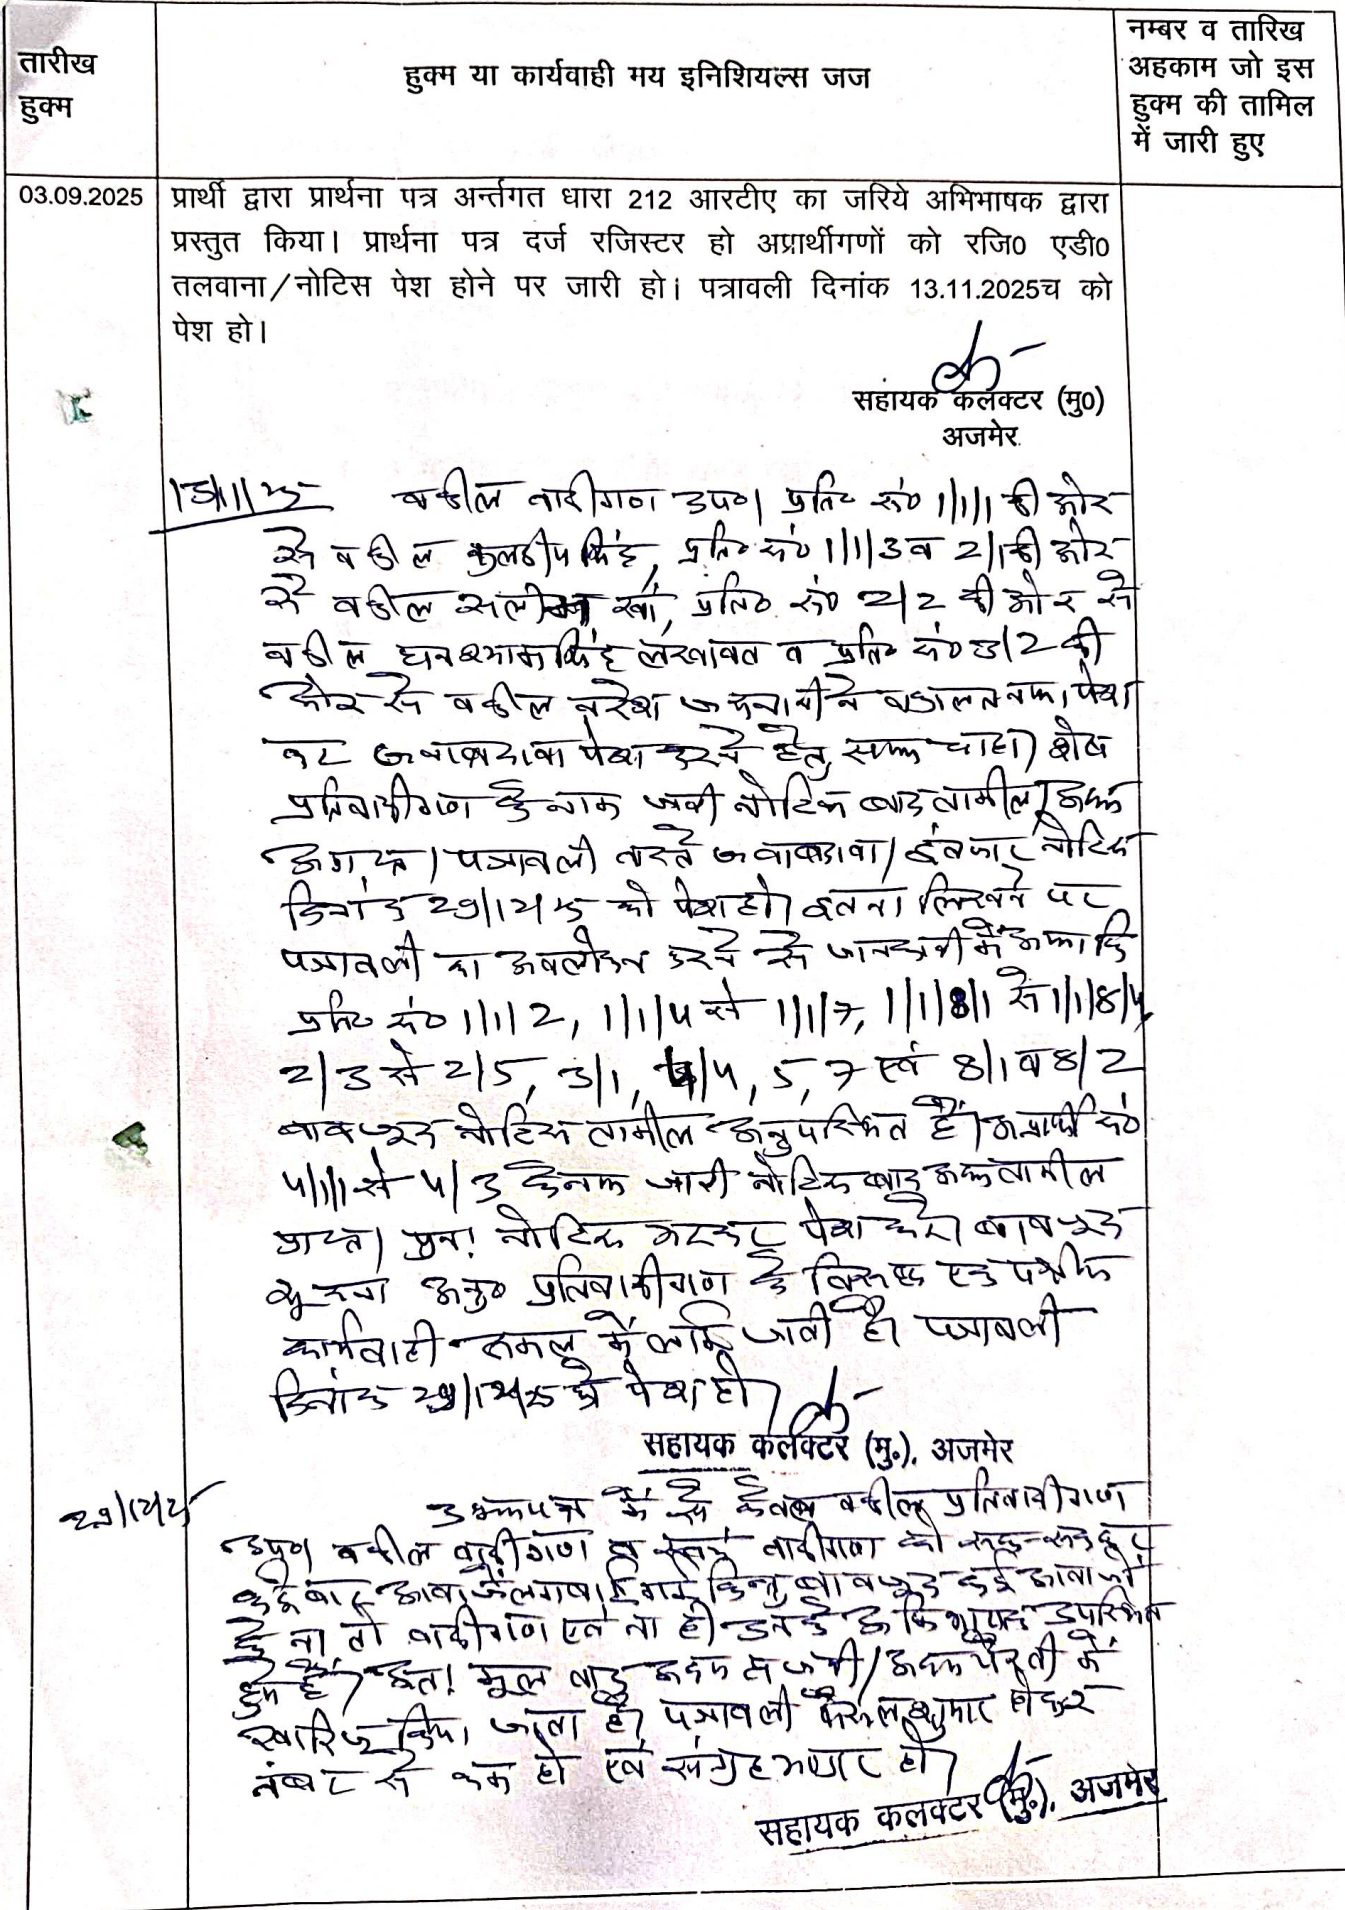 तारीख
हुक्म
हुक्म या कार्यवाही मय इनिशियल्स जज
नम्बर व तारिख
अहकाम जो इस
हुक्म की तामिल
में जारी हुए
03.09.2025
प्रार्थी द्वारा प्रार्थना पत्र अर्न्तगत धारा 212 आरटीए का जरिये अभिभाषक द्वारा
प्रस्तुत किया। प्रार्थना पत्र दर्ज रजिस्टर हो अप्रार्थीगणों को रजि0 एडी0
तलवाना/नोटिस पेश होने पर जारी हो। पत्रावली दिनांक 13.11.2025च को
पेश हो।
सहायक कलक्टर (मु0)
अजमेर
13/11/25 वकील वादीगण उप०। प्रति० सं० 1/1/1 की ओर
से वकील कुलदीप सिंह, प्रति० सं० 1/1/3 व 2/1 की ओर
से वकील सलीम खां, प्रति० सं० 2/2 की ओर से
वकील घनश्याम सिंह लखावत व प्रति० सं० 3/2 की
ओर से वकील नरेश ने वकालतनामा पेश
कर जवाबदावा पेश करने हेतु समय चाहा। शेष
प्रतिवादीगण के नाम जारी नोटिस बाद तामील/अदम
पत्रावली वास्ते जवाबदावा/इंतजार नोटिस
दिनांक 29/12/25 को पेश हो। इतना लिखने पर
पत्रावली का अवलोकन करने से जानकारी में आया कि
प्रति० सं० 1/1/2, 1/1/4 से 1/1/7, 1/1/8/1 से 1/1/8/4,
2/3 से 2/5, 3/1, 4/4, 5, 7 एवं 8/1 व 8/2
बावजूद नोटिस तामील अनुपस्थित है। अप्रार्थी सं०
4/1/1 से 4/3 के नाम जारी नोटिस बाद अदम तामील
प्राप्त। पुन: नोटिस भरकर पेश करे। बावजूद
सूचना अनु० प्रतिवादीगण के विरूद्ध एकपक्षीय
कार्यवाही अमल में लायी जाती है। पत्रावली
दिनांक 29/12/25 को पेश हो।
सहायक कलक्टर (मु.), अजमेर
29/12/25 उभयपक्ष में से केवल वकील प्रतिवादीगण
उप०। वकील वादीगण व स्वयं वादीगण को रूक-रूक कर
कई बार आवाजें लगवाई गई किन्तु बावजूद कई आवाजों
के ना तो वादीगण एवं ना ही उनके अभिभाषक उपस्थित
हुए हैं। अत: मूल वाद अदम हाजरी/अदम पैरवी में
खारिज किया जाता है। पत्रावली फैसल शुमार होकर
नंबर से कम हो एवं संग्रहागार हो।
सहायक कलक्टर (मु.), अजमेर